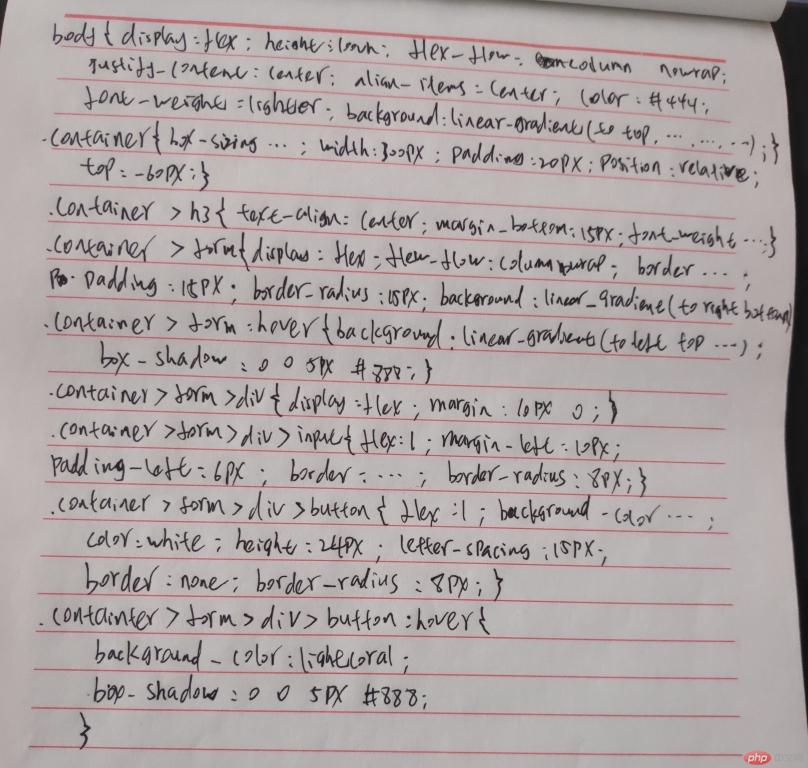 body { display : flex ; height : 100vh ; flex-flow : column nowrap;
justify-content : center; align-items : center; color : #444;
font-weight : lighter; background : linear-gradient (to top, ..., ..., ...) ; }
.container { box-sizing ... ; width : 300px ; padding : 20px ; position : relative ;
top : -60px ; }
.container > h3 { text-align : center ; margin_bottom : 15px ; font_weight ... ; }
.container > form { display : flex ; flew-flow : column wrap ; border ... ;
padding : 15px ; border_radius : 15px ; background : linear_gradient (to right bottom)
.container > form : hover { background : linear-gradient (to left top ...) ;
box-shadow : 0 0 5px #888 ; }
.container > form > div { display : flex ; margin : 10px 0 ; }
.container > form > div > input { flex : 1 ; margin-left : 10px ;
padding-left : 6px ; border : ... ; border-radius : 8px ; }
.container > form > div > button { flex : 1 ; background-color ... ;
color : white ; height : 24px ; letter-spacing : 15px ;
border : none ; border-radius : 8px ; }
.containter > form > div > button : hover {
background-color : lightcoral ;
box-shadow : 0 0 5px #888 ;
}
php